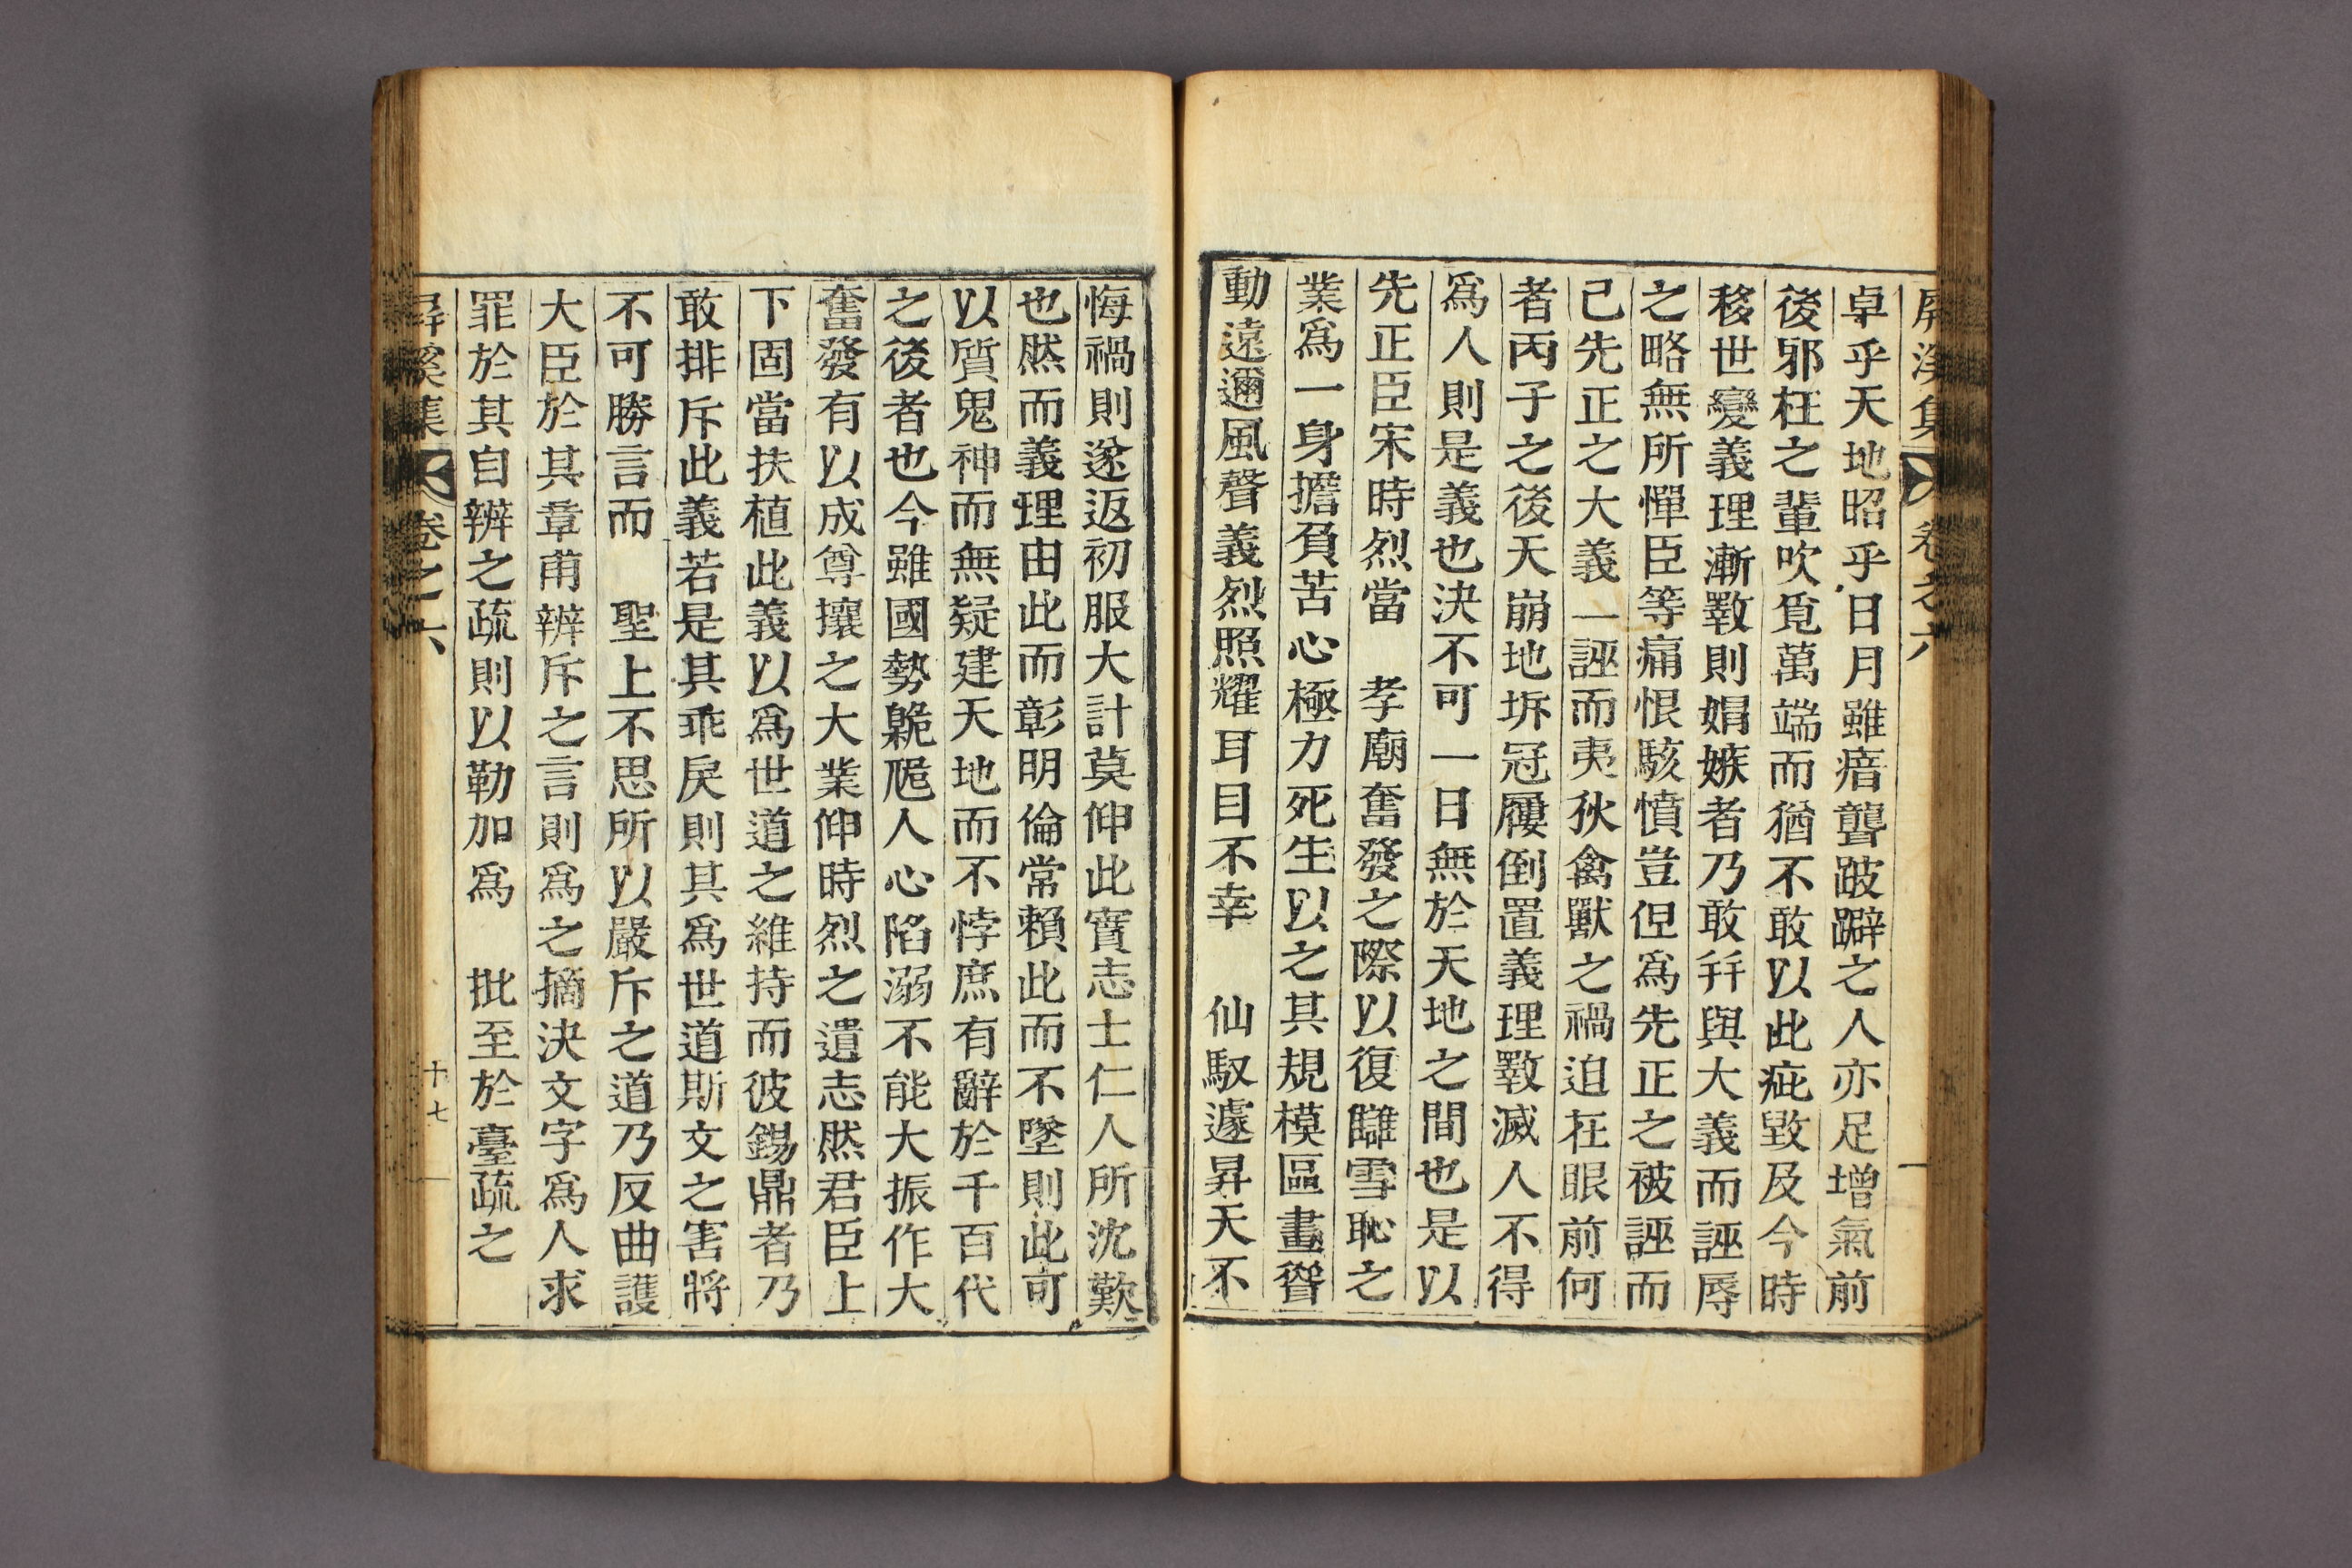 屛溪集 卷之六
卓乎天地昭乎日月雖瘖聾跛躃之人亦足增氣前
後邪枉之輩吹覓萬端而猶不敢以此疵毀及今時
移世變義理漸斁則娟嫉者乃敢幷與大義而誣辱
之略無所憚臣等痛恨駭憤豈但爲先正之被誣而
已先正之大義一誣而夷狄禽獸之禍迫在眼前何
者丙子之後天崩地坼冠屨倒置義理斁滅人不得
爲人則是義也決不可一日無於天地之間也是以
先正臣宋時烈當 孝廟奮發之際以復讎雪恥之
業爲一身擔負苦心極力死生以之其規模區畫聳
動遠邇風聲義烈照耀耳目不幸 仙馭遽昇天不
悔禍則遂返初服大計莫伸此實志士仁人所沈歎
也然而義理由此而彰明倫常賴此而不墜則此可
以質鬼神而無疑建天地而不悖庶有辭於千百代
之後者也今雖國勢臲卼人心陷溺不能大振作大
奮發有以成尊攘之大業伸時烈之遺志然君臣上
下固當扶植此義以爲世道之維持而彼錫鼎者乃
敢排斥此義若是其乖戾則其爲世道斯文之害將
不可勝言而 聖上不思所以嚴斥之道乃反曲護
大臣於其章甫辨斥之言則爲之摘決文字爲人求
罪於其自辨之疏則以勒加爲 批至於臺疏之
屛溪集 卷之六 十七